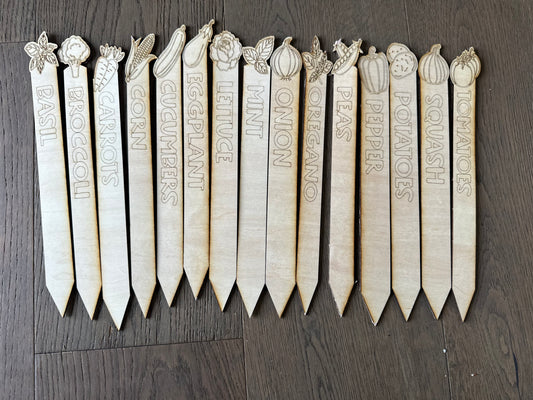 BASIL
BROCCOLI
CARROTS
CORN
CUCUMBERS
EGGPLANT
LETTUCE
MINT
ONION
OREGANO
PEAS
PEPPER
POTATOES
SQUASH
TOMATOES